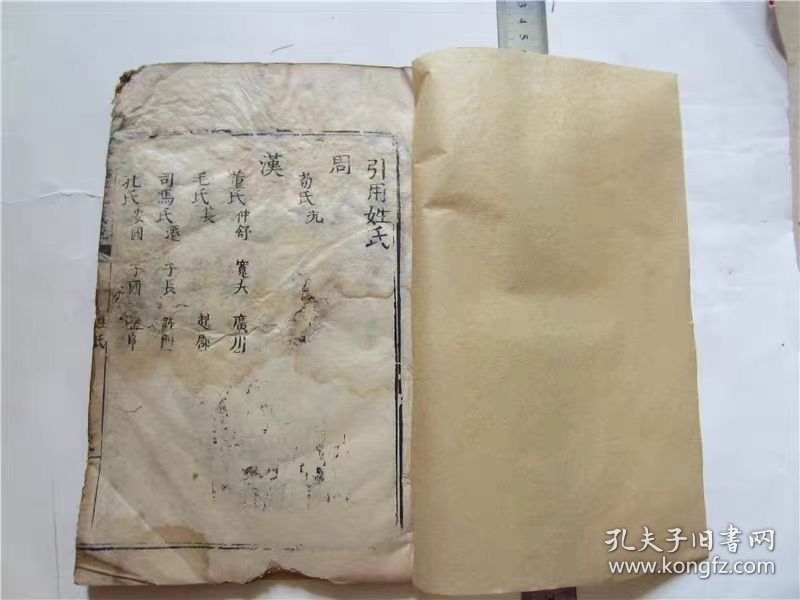 引用姓氏
周
荀氏
漢
董氏仲舒 寬大 廣川
毛氏萇
司馬氏遷 子長
孔氏安國 子國
姓氏
孔夫子旧书网
www.kongfz.com